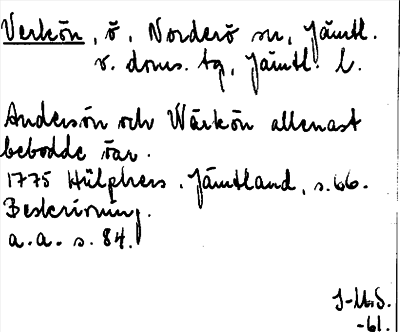 Verkön, ö, Norderö sn, Jämtl.
v. doms. tg, Jämtl. l.
Andersön och Wärkön allenast
bebodde öar.
1775 Hülphers. Jämtland, s. 66.
Beskrivning.
a.a. s. 84.
J-M.S.
-61.